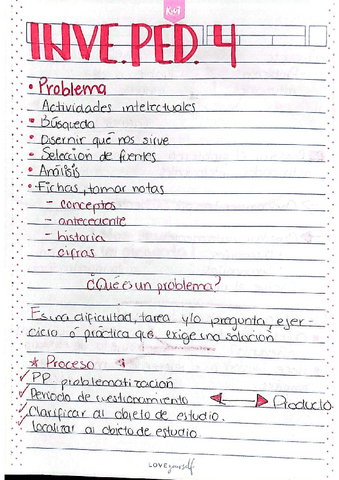 K:y
INVE. PED. 4
• Problema
Actividades intelectuales
• Búsqueda
• Disernir qué nos sirve
• Selección de fuentes
• Análisis
• Fichas, tomar notas
- conceptos
- antecedente
- historia
- cifras
¿Qué es un problema?
Es una dificultad, tarea y/o pregunta, ejer-
cicio ó práctica que exige una solución
* Proceso
✓ PP problematización
✓ Periodo de cuestionamiento ↔ Producto
✓ Clarificar al objeto de estudio.
✓ localizar al objeto de estudio
LOVE yourself